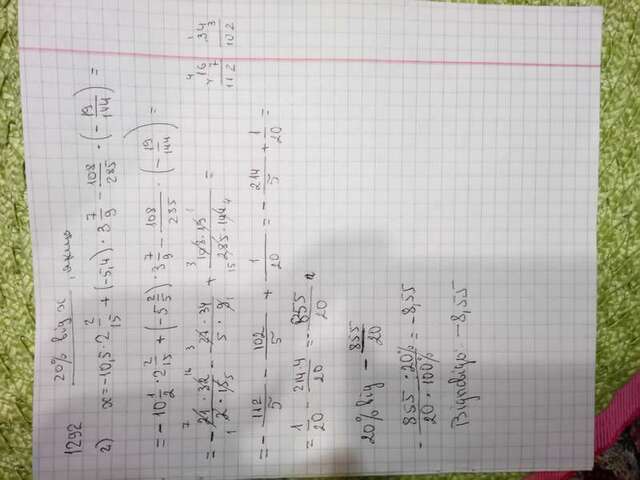 1292 20% від x, якщо
2) x = -10,5 · 2 2/15 + (-5,4) · 3 7/9 - 108/285 · (- 19/144) =
= -10 1/2 · 2 2/15 + (-5 2/5) · 3 7/9 - 108/285 · (- 19/144) =
= - 21 · 32 / 2 · 15 - 27 · 34 / 5 · 9 + 108 · 19 / 285 · 144 =
= - 112/5 - 102/5 + 1/20 = - 214/5 + 1/20 =
= 1/20 - 214·4/20 = - 855/20
20% від - 855/20
- 855 · 20% / 20 · 100% = -8,55
Відповідь: -8,55
16
7
112
34
3
102